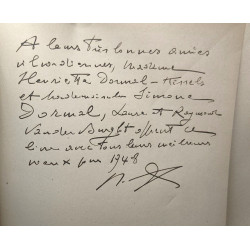 A leurs très bonnes amies
Madame
Henriette Dormal-
et Mademoiselle Simone
Dormal, Laure et Raymond
Vander Burght offrent ce
livre avec tous leurs meilleurs
voeux pour 1948